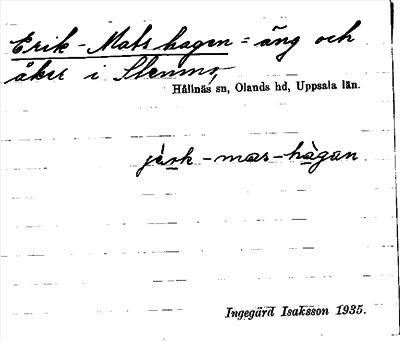 Erik-Mats hagen = äng och
åker i Stenmo,
Hållnäs sn, Olands hd, Uppsala län.
-mas-hàgan
Ingegärd Isaksson 1935.